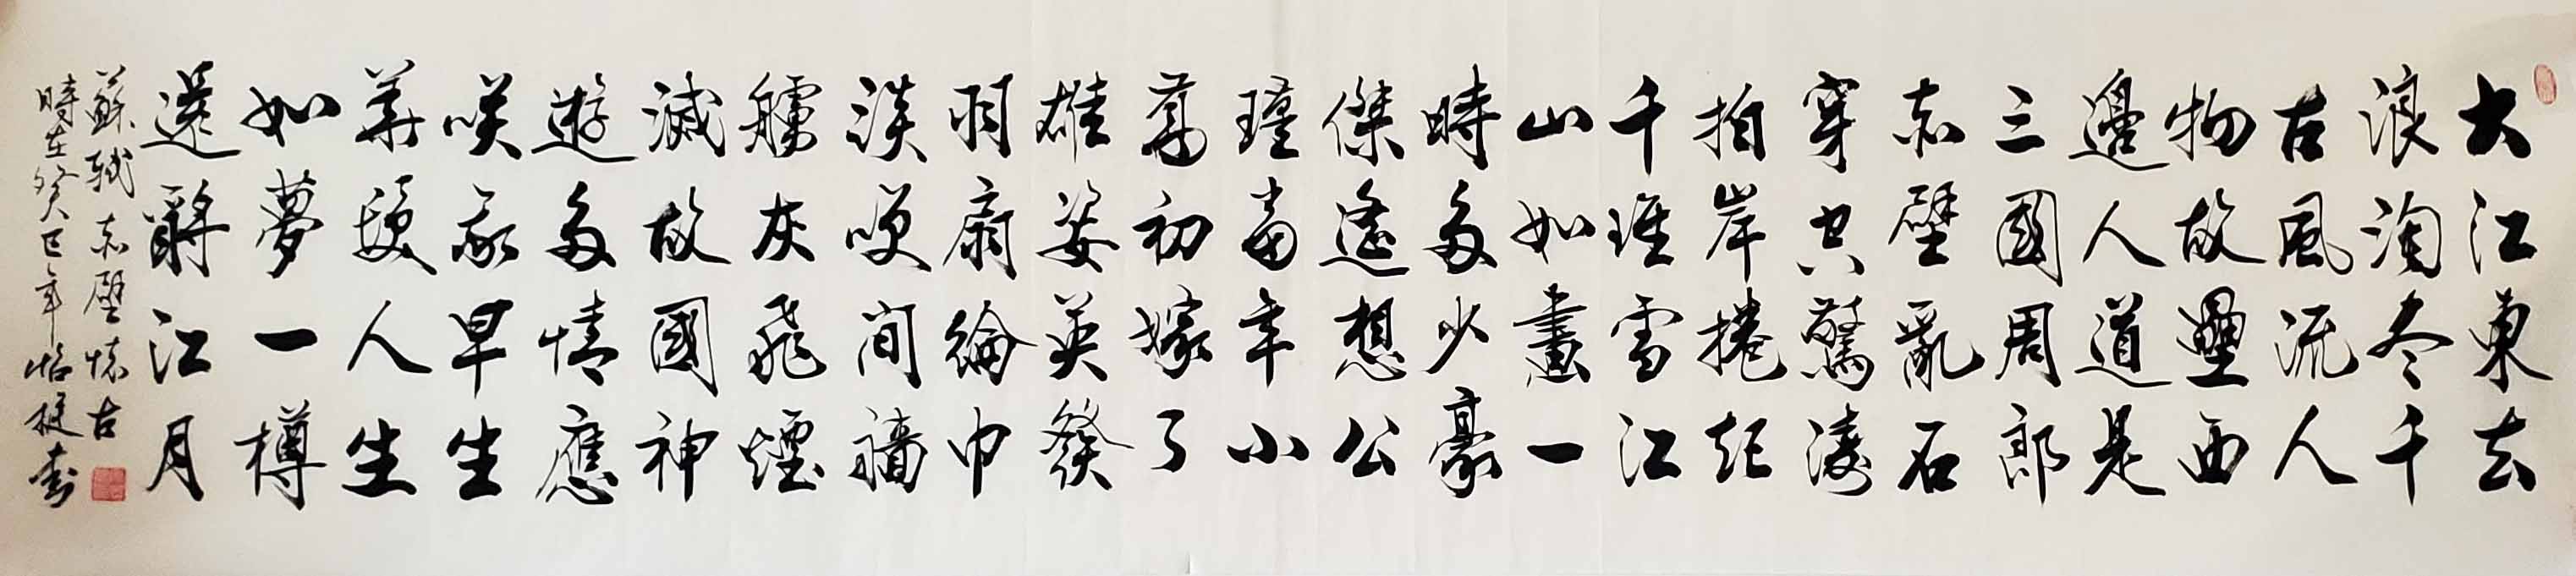 大江東去
浪淘尽千
古風流人
物故壘西
邊人道是
三國周郎
赤壁亂石
穿空驚濤
拍岸捲起
千堆雪江
山如畫一
時多少豪
傑遙想公
瑾當年小
喬初嫁了
雄姿英發
羽扇綸巾
談咲間檣
艫灰飛煙
滅故國神
遊多情應
咲我早生
華髮人生
如夢一樽
還酹江月
蘇軾赤壁懷古
時在癸巳年怡挺書